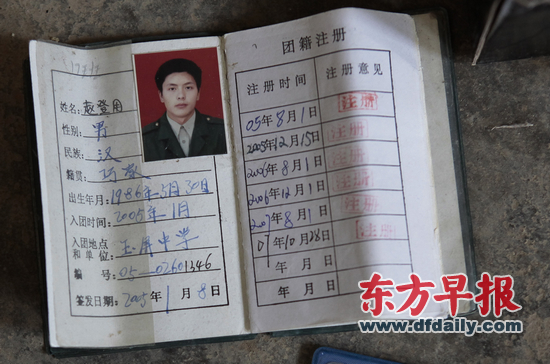 姓名 赵登用
性别 男
民族 汉
籍贯 巧家
出生年月:1986年5月30日
入团时间:2005年1月
入团地点
和单位: 玉屏中学
编 号:05—02601346
签发日期:2005年1月8日
团籍注册
注册时间 注册意见
05年8月1日 注册
2005年12月15日 注册
2006年8月1日 注册
2006年12月1日 注册
2007年8月1日 注册
07年10月28日 注册
年 月 日
年 月 日
东方早报
www.dfdaily.com